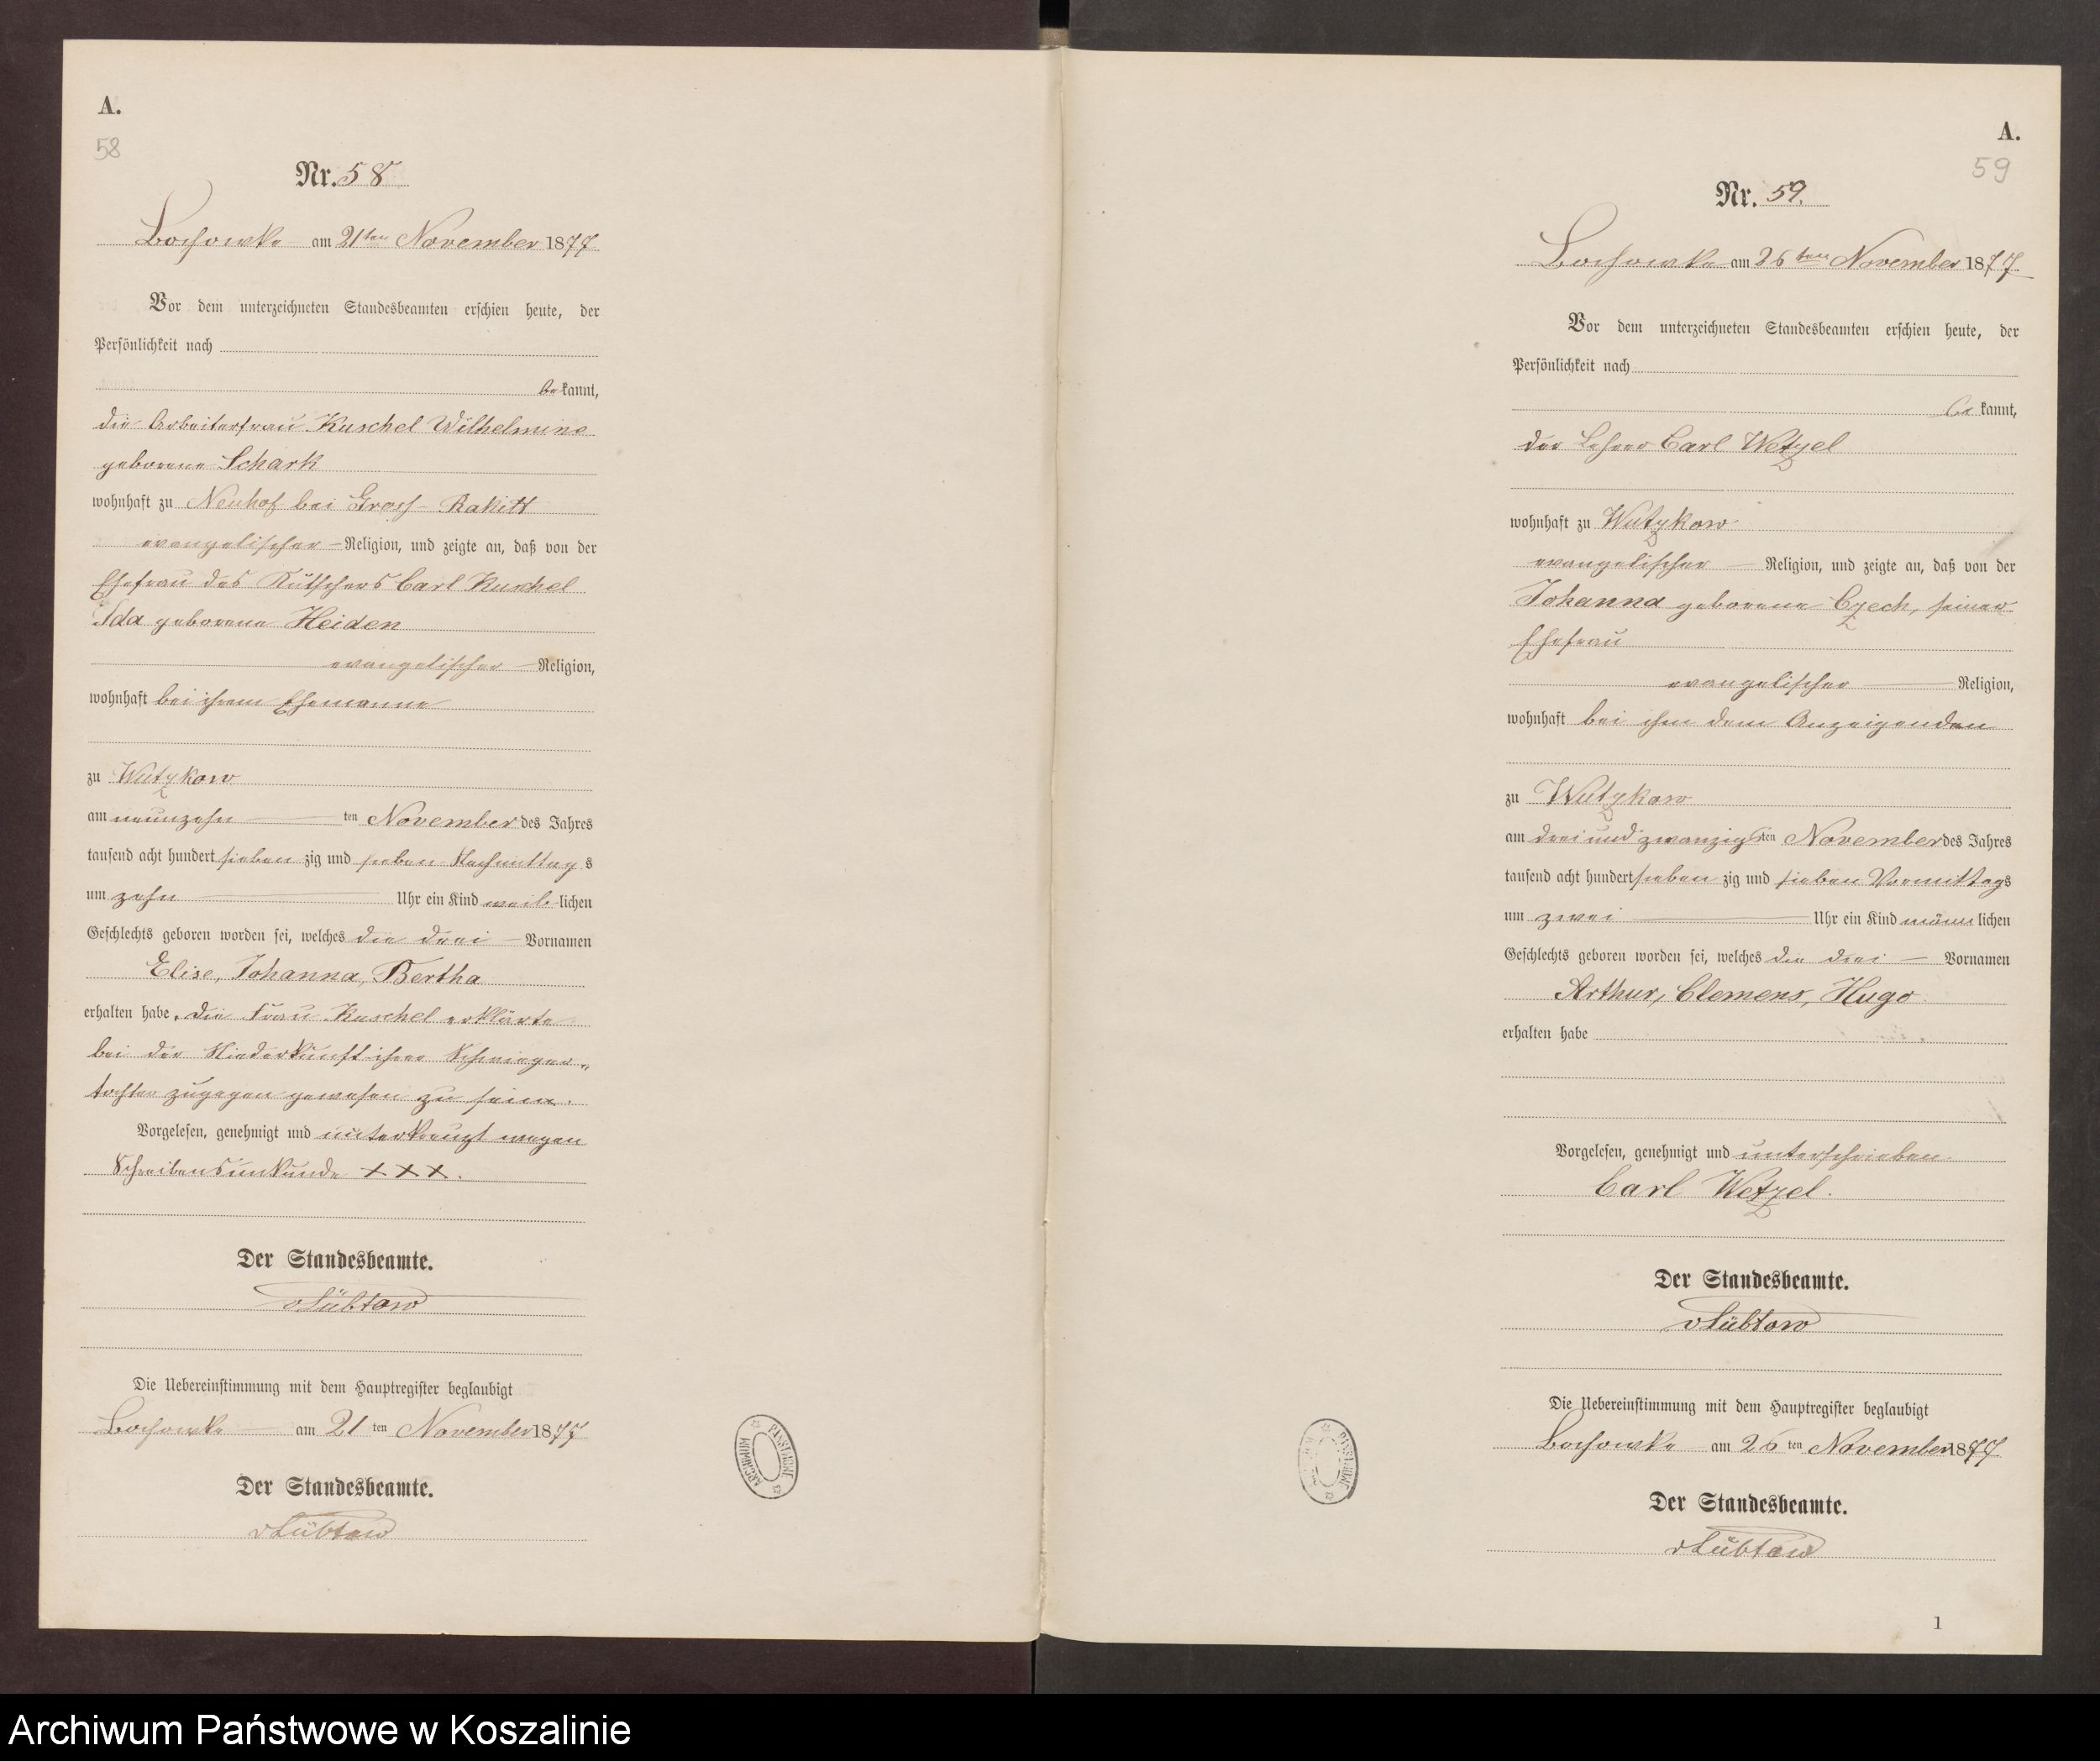 A.
58
Nr. 58
Bochowke am 21ten November 1877
Vor dem unterzeichneten Standesbeamten erschien heute, der
Persönlichkeit nach
bekannt,
die Arbeiterfrau Kuschel Wilhelmine
geborene Schark
wohnhaft zu Neuhof bei Gross-Rakitt
evangelischer Religion, und zeigte an, daß von der
Ehefrau des Kutschers Carl Kuschel
Ida geborene Heiden
evangelischer Religion,
wohnhaft bei ihrem Ehemanne
zu Wutzkow
am neunzehn ten November des Jahres
tausend acht hundert sieben zig und sieben Nachmittag s
um zehn Uhr ein Kind weib lichen
Geschlechts geboren worden sei, welches die drei Vornamen
Elise, Johanna, Bertha
erhalten habe. Die Frau Kuschel erklärte
bei der Niederkunft ihrer Schwieger„
tochter zugegen gewesen zu sein.
Vorgelesen, genehmigt und unterkreuzt wegen
Schreibensunkunde XXX.
Der Standesbeamte.
vLübtow
Die Uebereinstimmung mit dem Hauptregister beglaubigt
Bochowke am 21 ten November 1877
Der Standesbeamte.
vLübtow
ARCHIWUM PAŃSTWOWE
A.
59
Nr. 59.
Bochowke am 26ten November 1877.
Vor dem unterzeichneten Standesbeamten erschien heute, der
Persönlichkeit nach
be kannt,
der Lehrer Carl Wetzel
wohnhaft zu Wutzkow
evangelischer Religion, und zeigte an, daß von der
Johanna geborene Czech, seiner
Ehefrau
evangelischer Religion,
wohnhaft bei ihm dem Anzeigenden
zu Wutzkow
am drei und zwanzigsten November des Jahres
tausend acht hundert sieben zig und sieben Vormittags
um zwei Uhr ein Kind männ lichen
Geschlechts geboren worden sei, welches die drei Vornamen
Arthur, Clemens, Hugo
erhalten habe
Vorgelesen, genehmigt und unterschrieben.
Carl Wetzel.
Der Standesbeamte.
vLübtow
Die Uebereinstimmung mit dem Hauptregister beglaubigt
Bochowke am 26 ten November 1877
Der Standesbeamte.
vLübtow
1
Archiwum Państwowe w Koszalinie